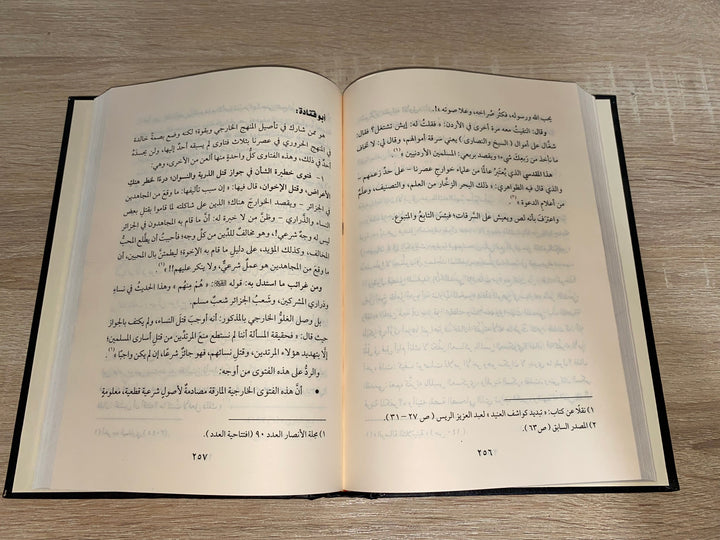 يحب الله ورسوله، فكثُر صُراخه، وعلا صوته »!.
وقال: التقيتُ معه مرة أخرى في الأردن: « فقلتُ له: إيش تشتغل؟ فقال:
شغَّال على أموال ( السيخ والنصارى ) يعني: سرقة أموالهم، وقال لي: لا تخف
ما نأخذ من رَبعِك شيء» ويقصد بربعي: المسلمين الأردنيين »(١).
هذا المقدسي الذي يُعتبَرُ عالمًا من علماء خوارج عصرنا – على حدِّ زعمهم –
والذي قال فيه الظواهري: « ذلك البحر الزخَّار من العلم، والتصنيف، وعلَمٌ
من أعلام الدعوة »(٢).
واعترَفَ بأنه لص ويعيش على السَّرقات؛ فبئسَ التابعُ والمتبوع.
١) نقلًا عن كتاب: « تبديد كواشف العنيد » لعبد العزيز الريس ( ص ٢٧ – ٣١ ).
٢) المصدر السابق ( ص٦٣ ).
٢٥٦
أبو قتادة:
هو ممن شارك في تأصيل المنهج الخارجي وبقوة؛ لكنه وضع بصمةً خالدة
في المنهج الحروري في عصرنا بثلاث فتاوى لم يسبقه أحدٌ إليها، ولن يحسده
أحدٌ في ذلك، وهذه الفتاوى كلُّ واحدةٍ منها ألعن من الأخرى، وهي:
١ – فتوى خطيرة الشأن في جواز قتل الذرية والنسوان؛ درءًا لخطر هتكِ
الأعراض، وقتلِ الإخوان، قال فيها: « إن سبب تأليفها: ما وقع من المجاهدين
في الجزائر – ويقصد الخوارجَ هناك؛ الذين على شاكلته لما قاموا بقتلِ بعض
النساء والذَّراري – وظنَّ مِن لا خبرة له: أنَّ ما قام به المجاهدون في الجزائر
ليس له وجهٌ شرعي!، وهو مخالفٌ للدِّين من كلِّ وجه؛ فأحببتُ أن يطَّلع المحبُّ
المخالف، وكذلك المؤيد، على دليلِ ما قام به الإخوة؛ ليطمئنَّ بال المحبين، أن
ما وقع من المجاهدين هو عملٌ شرعيٌّ، ولا ينكر عليهم!! »(١).
ومن غرائب ما استدل به: قوله ﷺ: « هُمْ مِنهُم » وهذا الحديثُ في نساءِ
وذراري المشركين، وشَعبُ الجزائر شعبٌ مسلم.
بل وصل الغلوُّ الخارجي بالمذكور: أنه أوجبَ قتلَ النساء، ولم يكتف بالجواز
حيث قال: « فحقيقة المسألة أننا لم نستطع منعَ المرتدِّين من قتلِ أسارى المسلمين؛
إلَّا بتهديد هؤلاء المرتدين، وقتلِ نسائهم، فهو جائزٌ شرعًا، إن لم يكن واجبًا »(١).
والردُّ على هذه الفتوى من أوجه:
• أنَّ هذه الفتوى الخارجية المارقة مصادمةٌ لأصولٍ شرعية قطعيةٍ، معلومةٍ
١) مجلة الأنصار العدد ٩٠ (افتتاحية العدد ).
٢٥٧